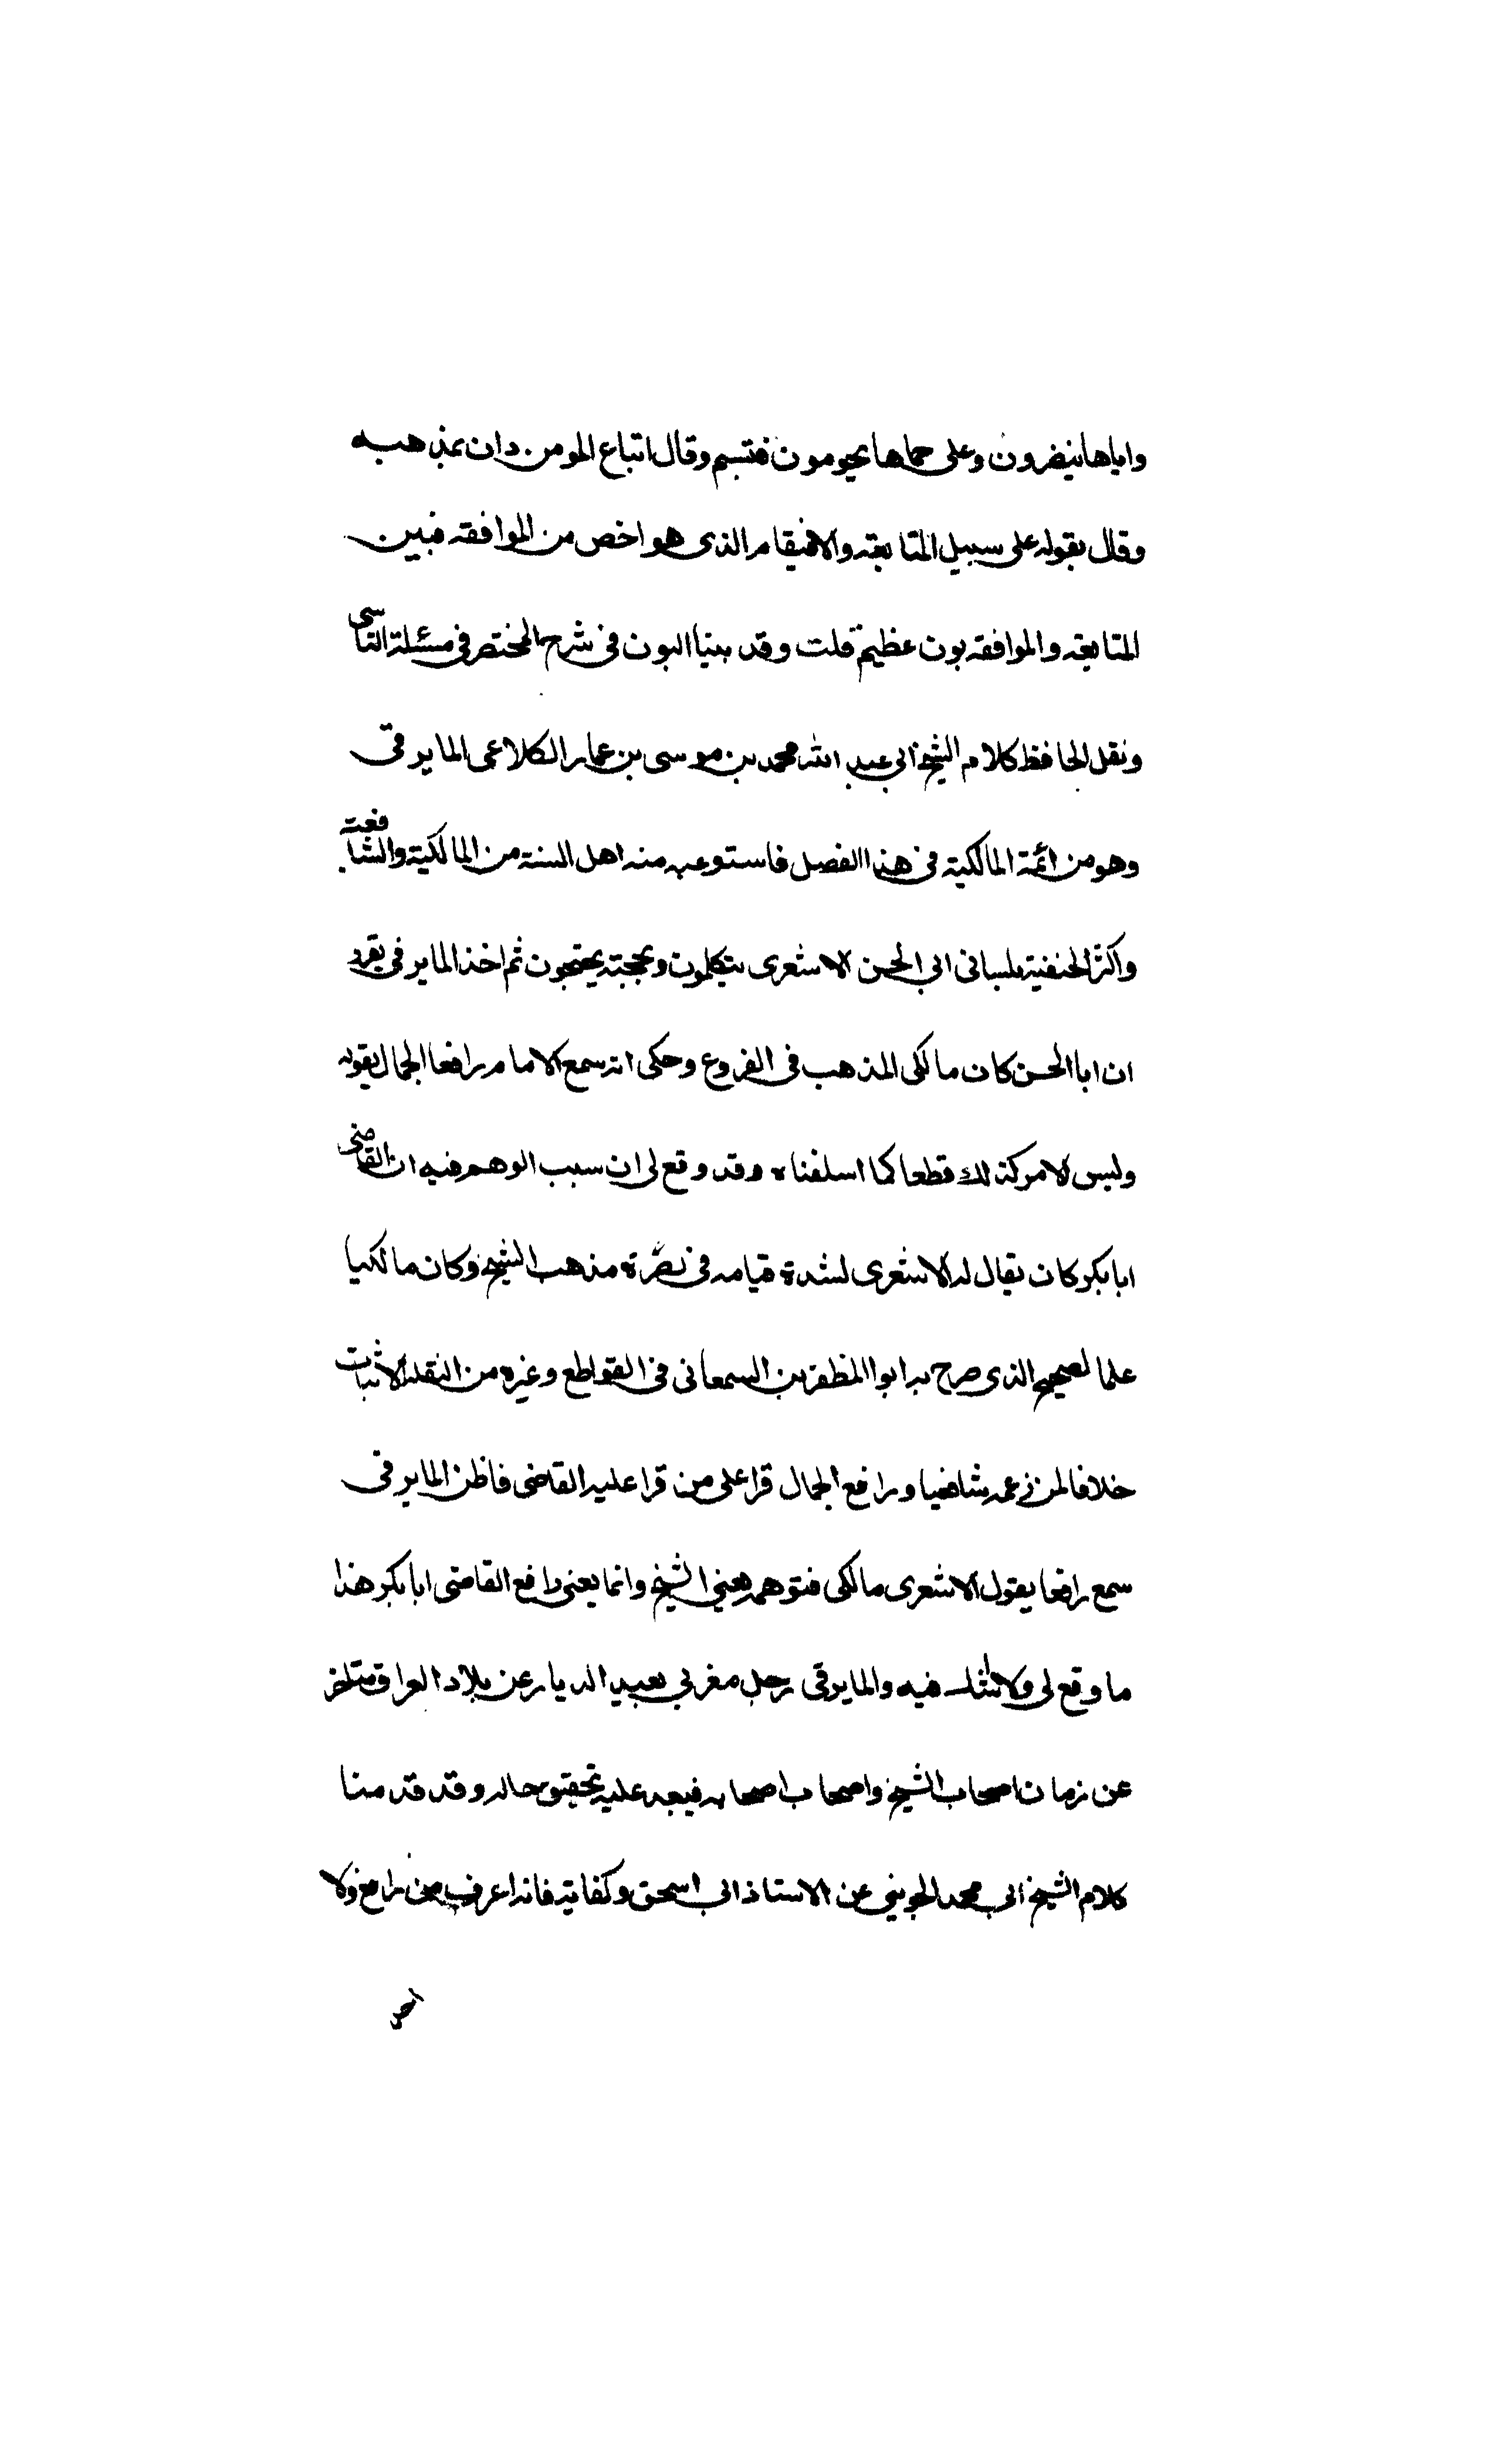 واياها ينصرون وعلى حماها يحومون فتبسم وقال اتباع المومن دان بمذهبه
وقال بقوله على سبيل المتابعة والاقتفا الذى هو اخص من الموافقه فبين
المتابعة والموافقه بون عظيم قلت وقد بينا البون فى شرح المختصر فى مسئلة التاسى
ونقل الحافظ كلام الشيخ ابى عبد الله محمد بن موسى بن عمار الكلاعى المايرقى
وهو من ائمة المالكية فى هذا الفصل فاستوعبه منه اهل السنة من المالكية والشافعية
واكثر الحنفية بلسان ابى الحسن الاشعرى يتكلمون وبحجته يحتجون ثم اخذ المايرقى يقرر
ان ابا الحسن كان مالكى المذهب فى الفروع وحكى انه سمع الامام رافعا الجمال يقوله
وليس الامر كذلك قطعا كما اسلفناه وقد وقع لى ان سبب الوهم فيه ان القاضى
ابا بكر كان يقال له الاشعرى لشدة قيامه فى نصرة مذهب الشيخ وكان مالكيا
على الصحيح الذى صرح به ابو المظفر بن السمعانى فى القواطع وغيره من النقلة الاثبات
خلافا لمن زعمه شافعيا ورافع الجمال قرا على من قرا عليه القاضى فاظن المايرقى
سمع رافعا يقول الاشعرى مالكى فتوهمه يعنى الشيخ وانما يعنى رافع القاضى ابا بكر هذا
ما وقع لى ولا اشك فيه والمايرقى رجل مغربى بعيد الديار عن بلاد العراق متاخر
عن زمان اصحاب الشيخ واصحاب اصحابه فيبعد عليه تحقيق حاله وقد قدمنا
كلام الشيخ ابى محمد الجوينى عن الاستاذ ابى اسحق وكفا به فانه اعرف من رافع ولا